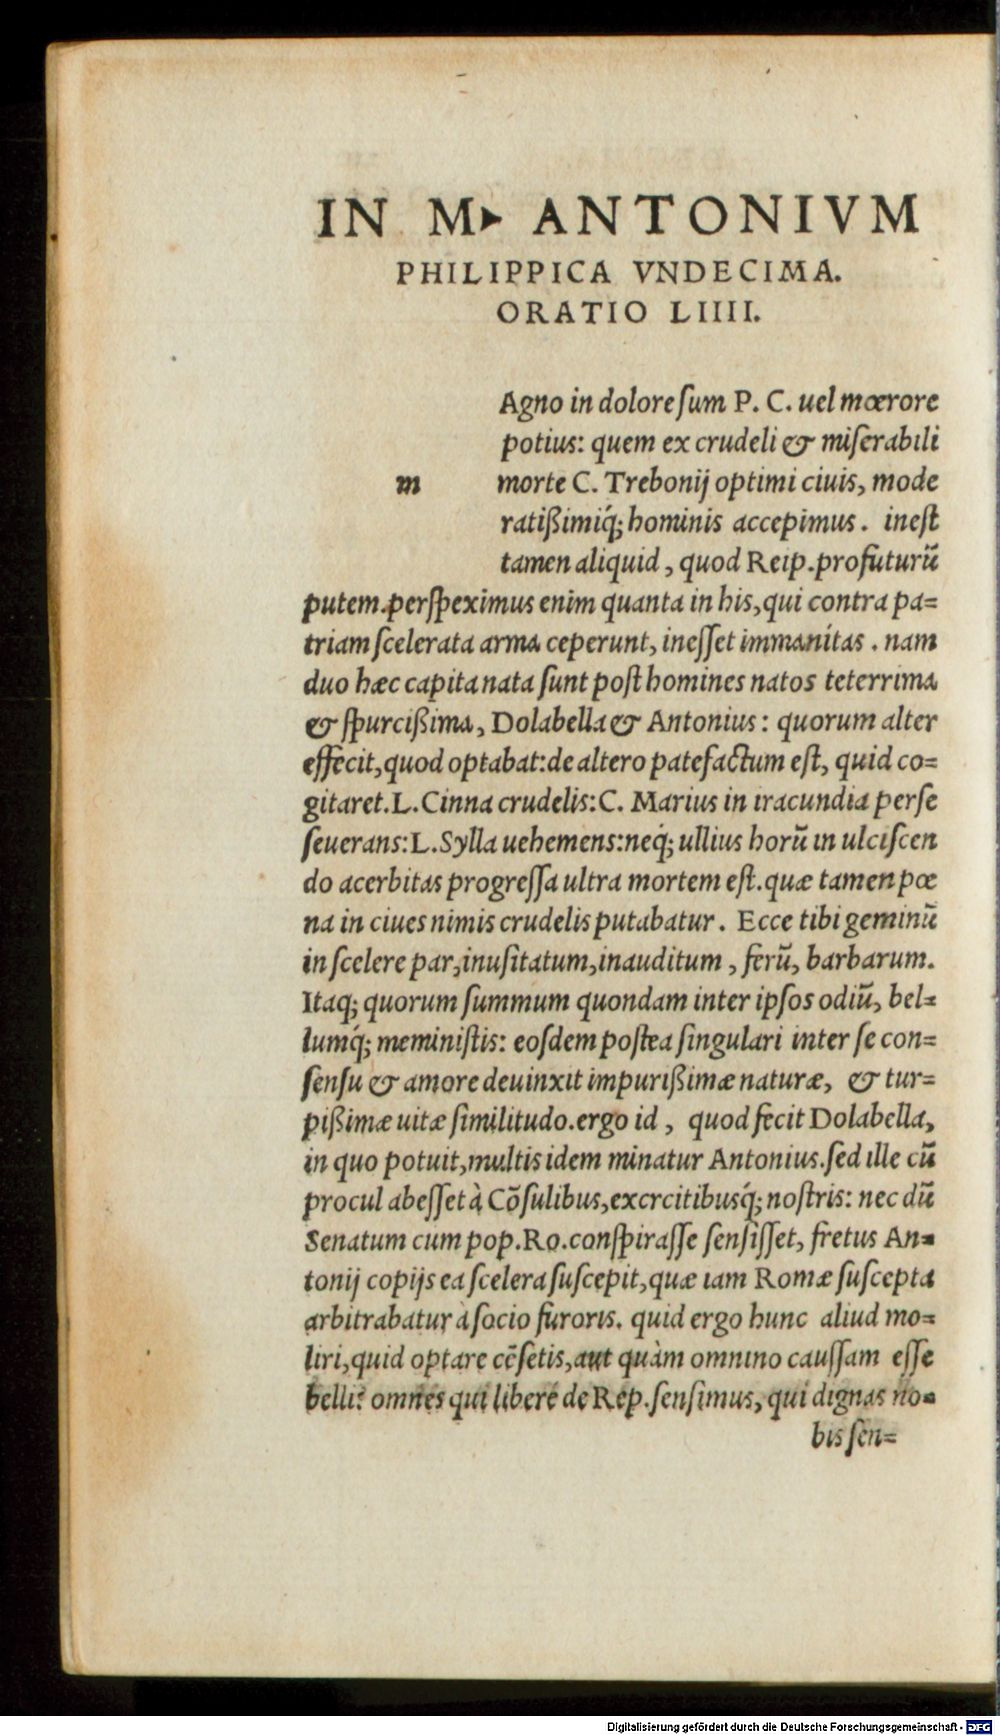 IN M. ANTONIVM
PHILIPPICA VNDECIMA.
ORATIO LIIII.
Agno in dolore ſum P. C. uel mœrore
potius: quem ex crudeli & miſerabili
m morte C. Trebonij optimi ciuis, mode
ratißimiq́; hominis accepimus. ineſt
tamen aliquid, quod Reip. profuturũ
putem. perſpeximus enim quanta in his, qui contra pa=
triam ſcelerata arma ceperunt, ineſſet immanitas. nam
duo hæc capita nata ſunt poſt homines natos teterrima
& ſpurcißima, Dolabella & Antonius: quorum alter
effecit, quod optabat: de altero patefactum eſt, quid co=
gitaret. L. Cinna crudelis: C. Marius in iracundia perſe
ſeuerans: L. Sylla uehemens: neq́; ullius horũ in ulciſcen
do acerbitas progreſſa ultra mortem eſt. quæ tamen pœ
na in ciues nimis crudelis putabatur. Ecce tibi geminũ
in ſcelere par, inuſitatum, inauditum, ferũ, barbarum.
Itaq; quorum ſummum quondam inter ipſos odiũ, bel=
lumq́; meminiſtis: eoſdem poſtea ſingulari inter ſe con=
ſenſu & amore deuinxit impurißimæ naturæ, & tur=
pißimæ uitæ ſimilitudo. ergo id, quod fecit Dolabella,
in quo potuit, multis idem minatur Antonius. ſed ille cũ
procul abeſſet à Cõſulibus, excrcitibusq́; noſtris: nec dũ
Senatum cum pop. Ro. conſpiraſſe ſenſiſſet, fretus An=
tonij copijs ea ſcelera ſuſcepit, quæ iam Romæ ſuſcepta
arbitrabatur à ſocio furoris. quid ergo hunc aliud mo=
liri, quid optare cẽſetis, aut quàm omnino cauſſam eſſe
belli? omnes qui liberè de Rep. ſenſimus, qui dignas no=
bis ſen=
Digitalisierung gefördert durch die Deutsche Forschungsgemeinschaft - DFG